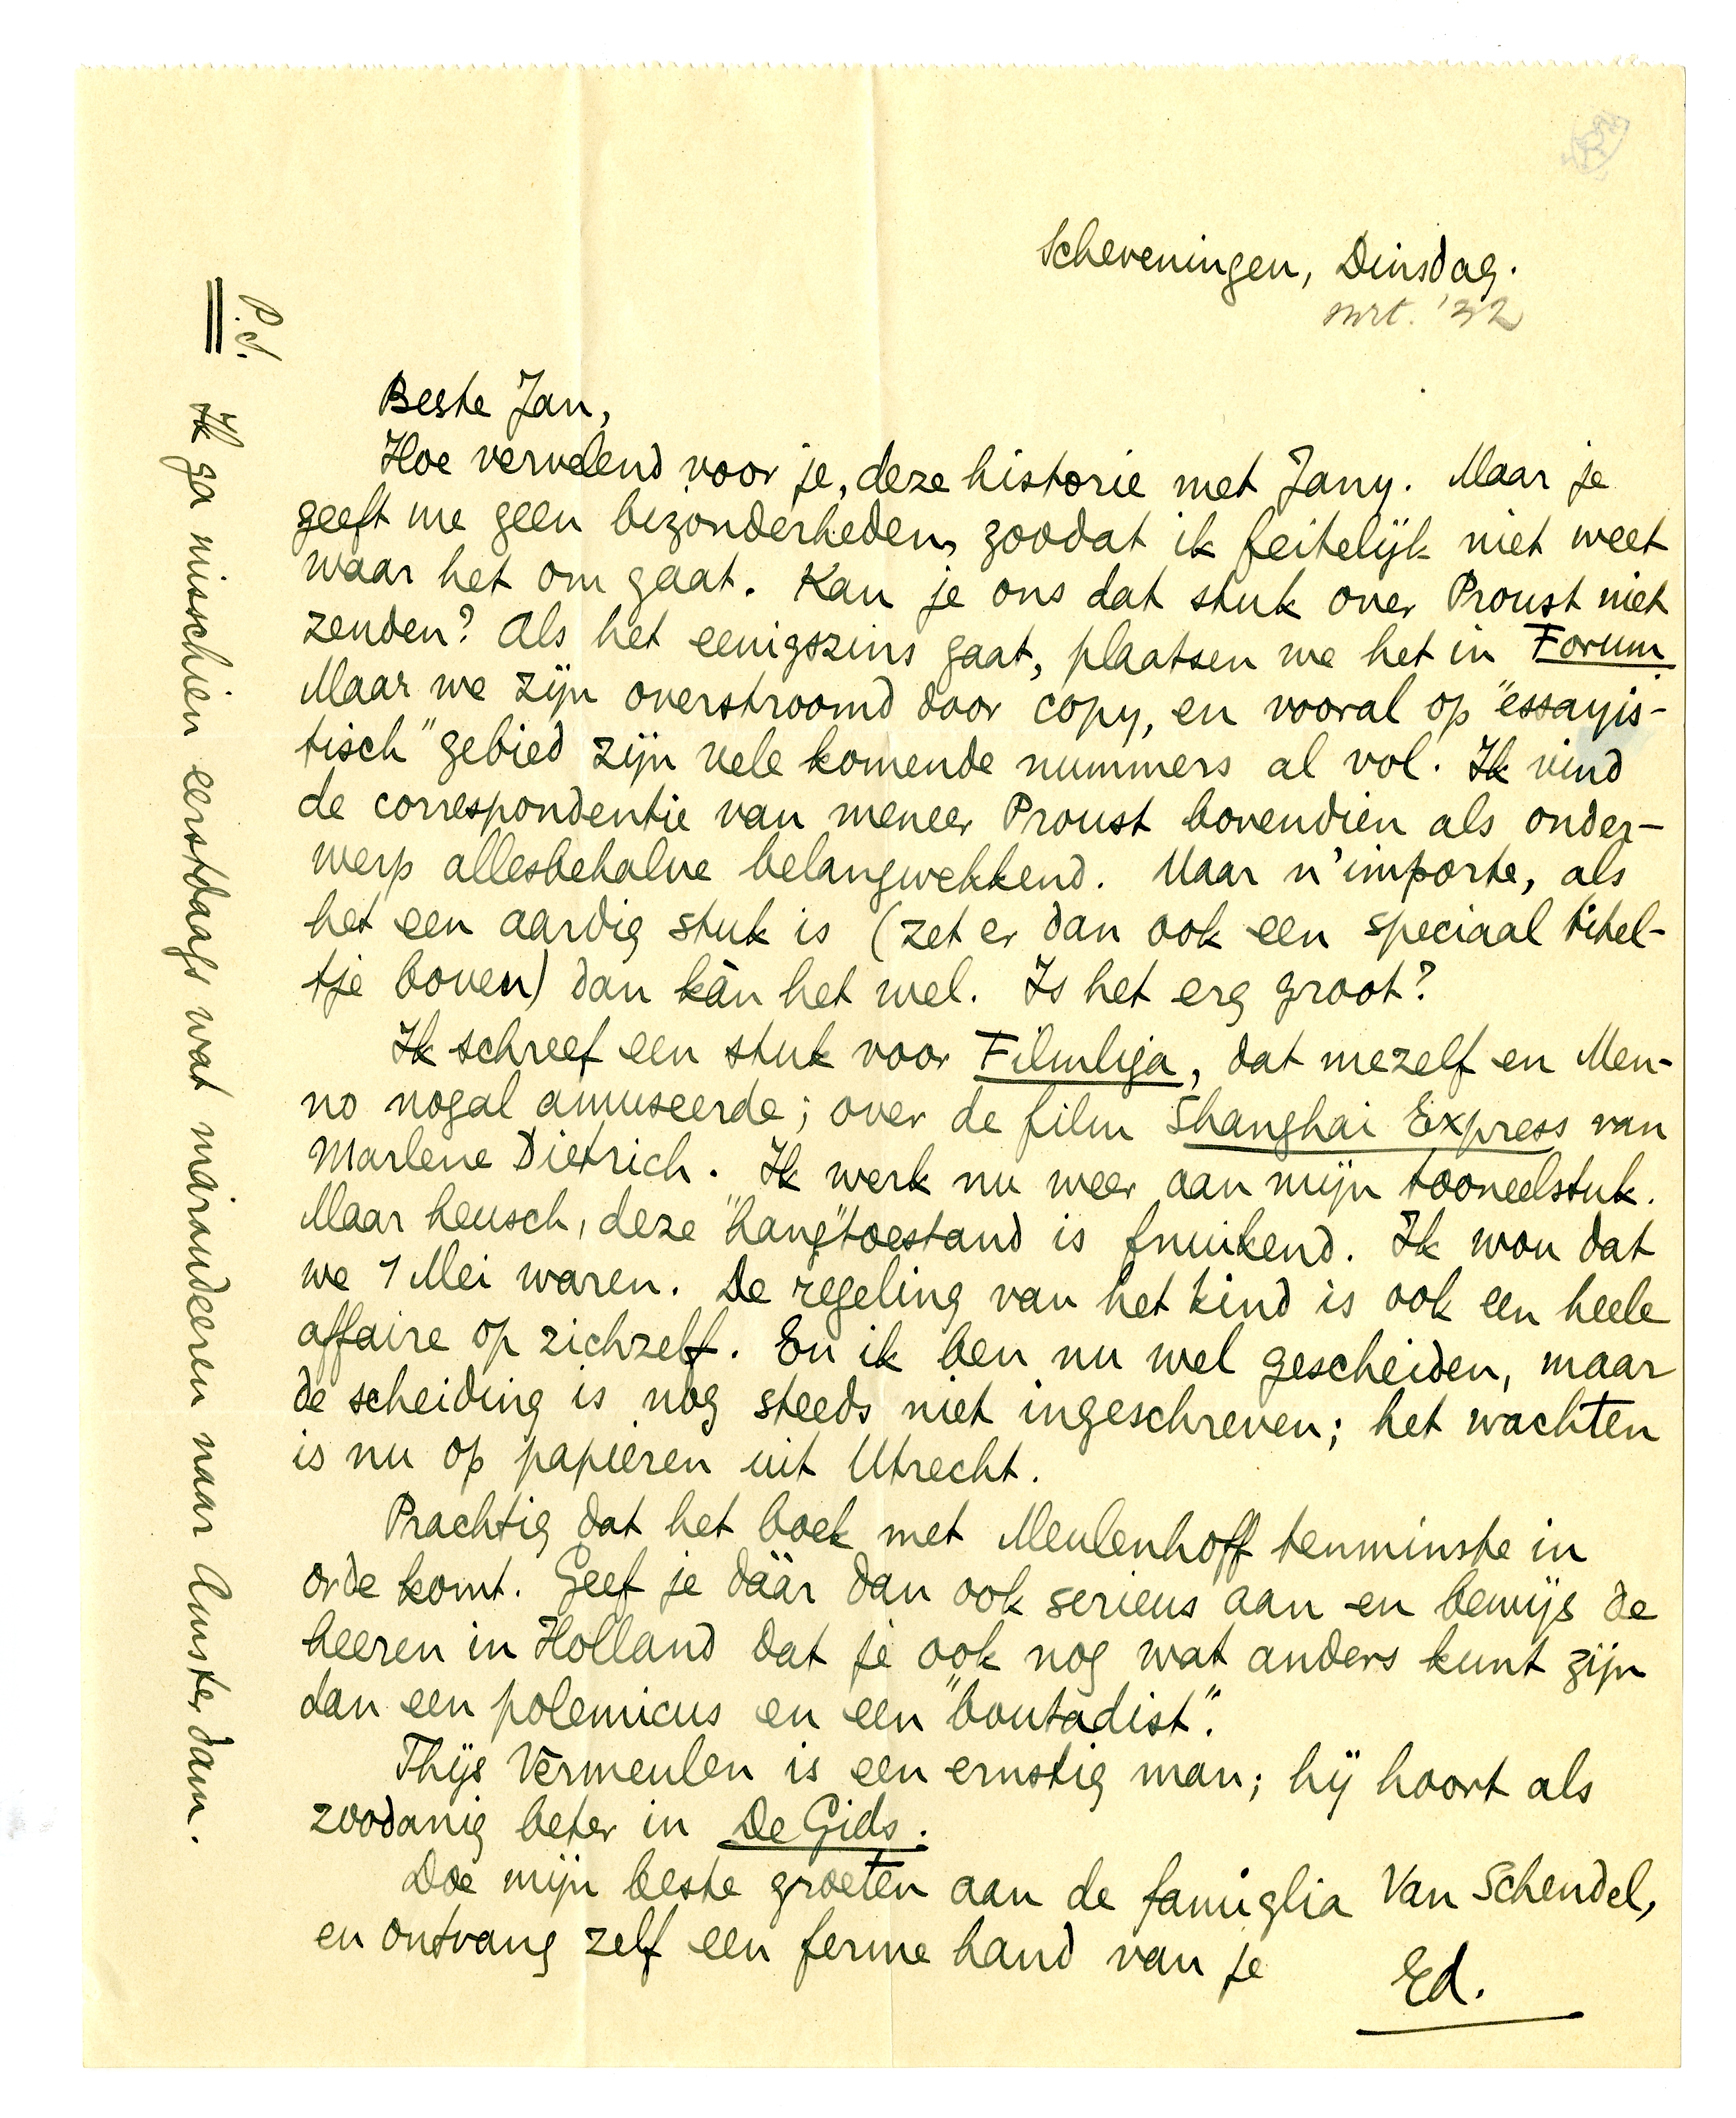 Scheveningen, Dinsdag.
mrt. '32
Beste Jan,
Hoe vervelend voor je, deze historie met Jany. Maar je
geeft me geen bizonderheden, zoodat ik feitelijk niet weet
waar het om gaat. Kan je ons dat stuk over Proust niet
zenden? Als het eenigszins gaat, plaatsen we het in Forum.
Maar we zijn overstroomd door copy, en vooral op "essayis-
tisch" gebied zijn vele komende nummers al vol. Ik vind
de correspondentie van meneer Proust bovendien als onder-
werp allesbehalve belangwekkend. Maar n'importe, als
het een aardig stuk is (zet er dan ook een speciaal titel-
tje boven) dan kàn het wel. Is het erg groot?
Ik schreef een stuk voor Filmliga, dat mezelf en Men-
no nogal amuseerde; over de film Shanghai Express van
Marlene Dietrich. Ik werk nu weer aan mijn tooneelstuk.
Maar heusch, deze "hang"toestand is fnuikend. Ik wou dat
we 1 Mei waren. De regeling van het kind is ook een heele
affaire op zichzelf. En ik ben nu wel gescheiden, maar
de scheiding is nog steeds niet ingeschreven; het wachten
is nu op papieren uit Utrecht.
Prachtig dat het boek met Meulenhoff tenminste in
orde komt. Geef je dààr dan ook serieus aan en bewijs de
heeren in Holland dat je ook nog wat anders kunt zijn
dan een polemicus en een "boutadist".
Thijs Vermeulen is een ernstig man; hij hoort als
zoodanig beter in De Gids.
Doe mijn beste groeten aan de famiglia Van Schendel,
en ontvang zelf een ferme hand van je
Ed.
P.S.
Ik ga misschien eerstdaags wat maraudeeren naar Amsterdam.